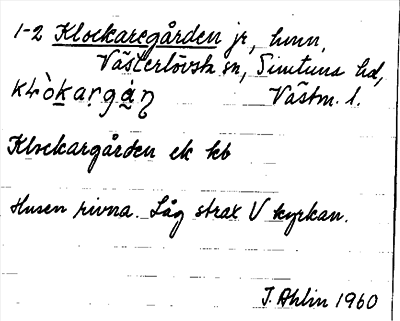 1-2 Klockaregården jr, hmn,
Västerlövsta sn, Simtuna hd,
Västm. l.
Klockargården ek kb
Husen rivna. Låg strax V kyrkan.
J. Ahlin 1960